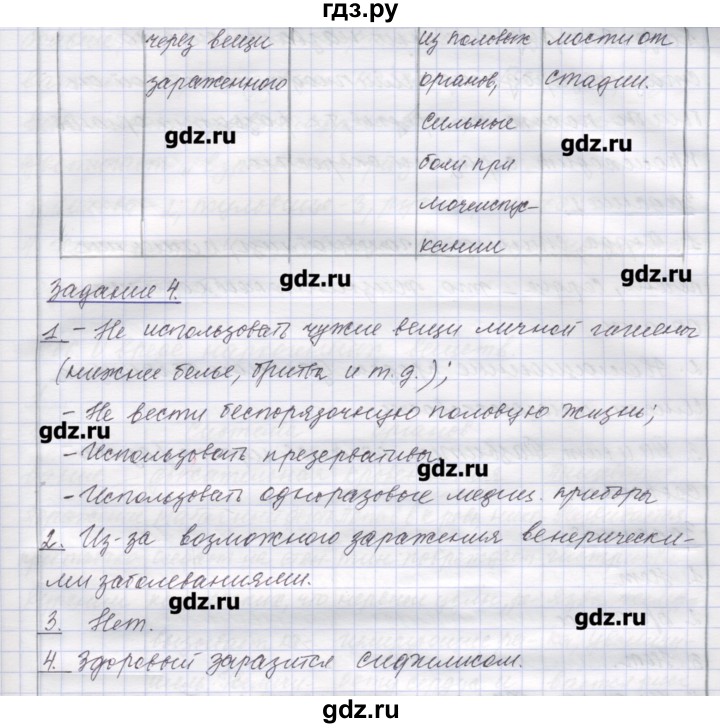 гдз.ру
через вещи
зараженного
из половых
органов,
сильные
боли при
мочеиспус-
кании
мости от
стадии.
gdz.ru
gdz.ru
gdz.ru
gdz.ru
Задание 4.
1. - Не использовать чужие вещи личной гигиены
(нижнее белье, бритва и т.д.);
- Не вести беспорядочную половую жизнь;
gdz.ru
- Использовать презервативы;
gdz.ru
- Использовать одноразовые медиц. приборы
2. Из-за возможного заражения венерически-
ми заболеваниями.
gdz.ru
3. Нет.
gdz.ru
4. Здоровый заразится сифилисом.
gdz.ru